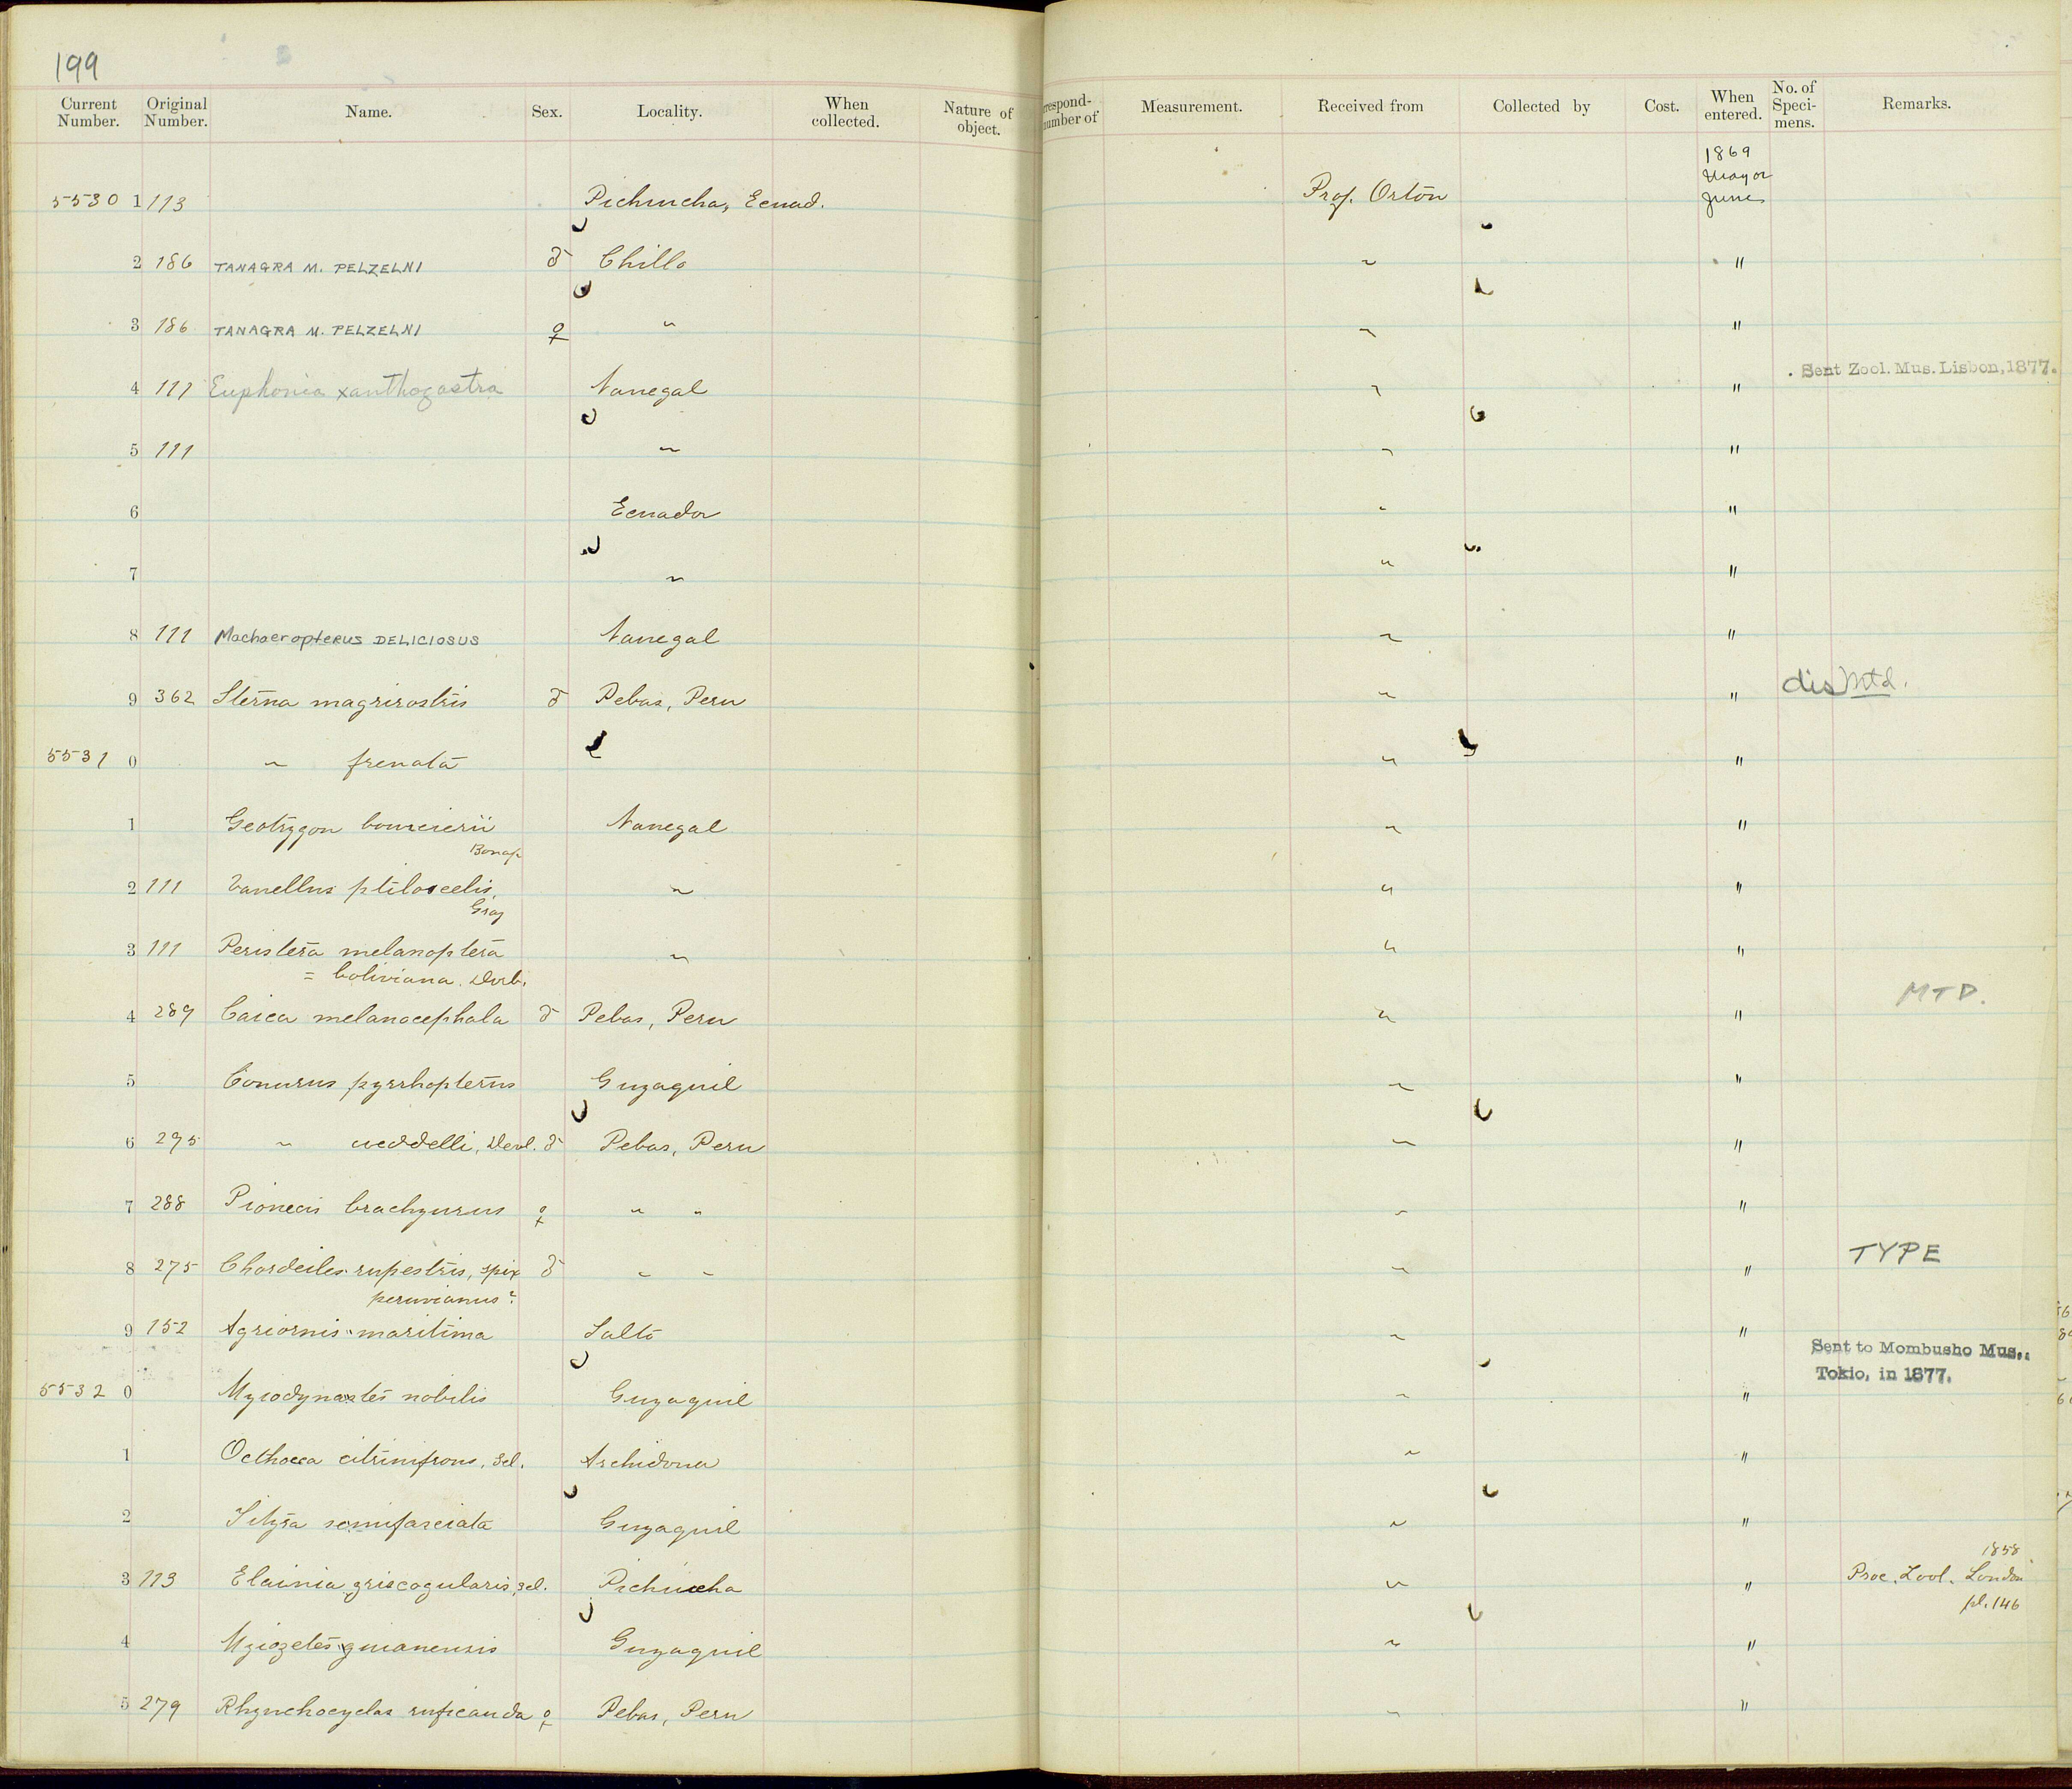 199
Current Number. Original Number. Name. Sex. Locality. When collected. Nature of object. respond- number of Measurement. Received from Collected by Cost. When entered. No. of Speci- mens. Remarks.
1869
May or
5530 1 113 Pichincha, Ecuad. Prof. Orton June
2 186 TANAGRA M. PELZELNI ♂ Chillo " "
3 186 TANAGRA M. PELZELNI ♀ " " "
Sent Zool. Mus. Lisbon, 1877.
4 111 Euphonia xanthogastra Nanegal " "
5 111 " " "
6 Ecuador " "
7 " " "
8 111 Machaeropterus DELICIOSUS Nanegal " "
9 362 Sterna magrirostris ♂ Pebas, Peru " " dis Mtd.
5531 0 " frenata " "
1 Geotrygon bourcierii Nanegal " "
Bonap
2 111 Vanellus ptiloscelis, " " "
Gray
3 111 Peristera melanoptera " " "
= boliviana. Dorb.
4 289 Caica melanocephala ♂ Pebas, Peru " " MTD.
5 Conurus pyrrhopterus Guyaquil " "
6 295 " weddelli, Devl. ♂ Pebas, Peru " "
7 288 Pionecis brachyurus ♀ " " " "
8 275 Chordeiles rupestris, spix ♂ " " " " TYPE
peruvianus?
9 152 Agriornis maritima Salto " "
Sent to Mombusho Mus.,
Tokio, in 1877.
5532 0 Myiodynastes nobilis Guyaquil " "
1 Octhoeca citrinifrons, Scl. Archidona " "
2 Tityra semifasciata Guyaquil " "
1858
3 113 Elainia griseogularis, Scl. Pichincha " " Proc. Zool. London
pl. 146
4 Myiozetes guianensis Guyaquil " "
5 279 Rhynchocyclas ruficauda ♀ Pebas, Peru " "